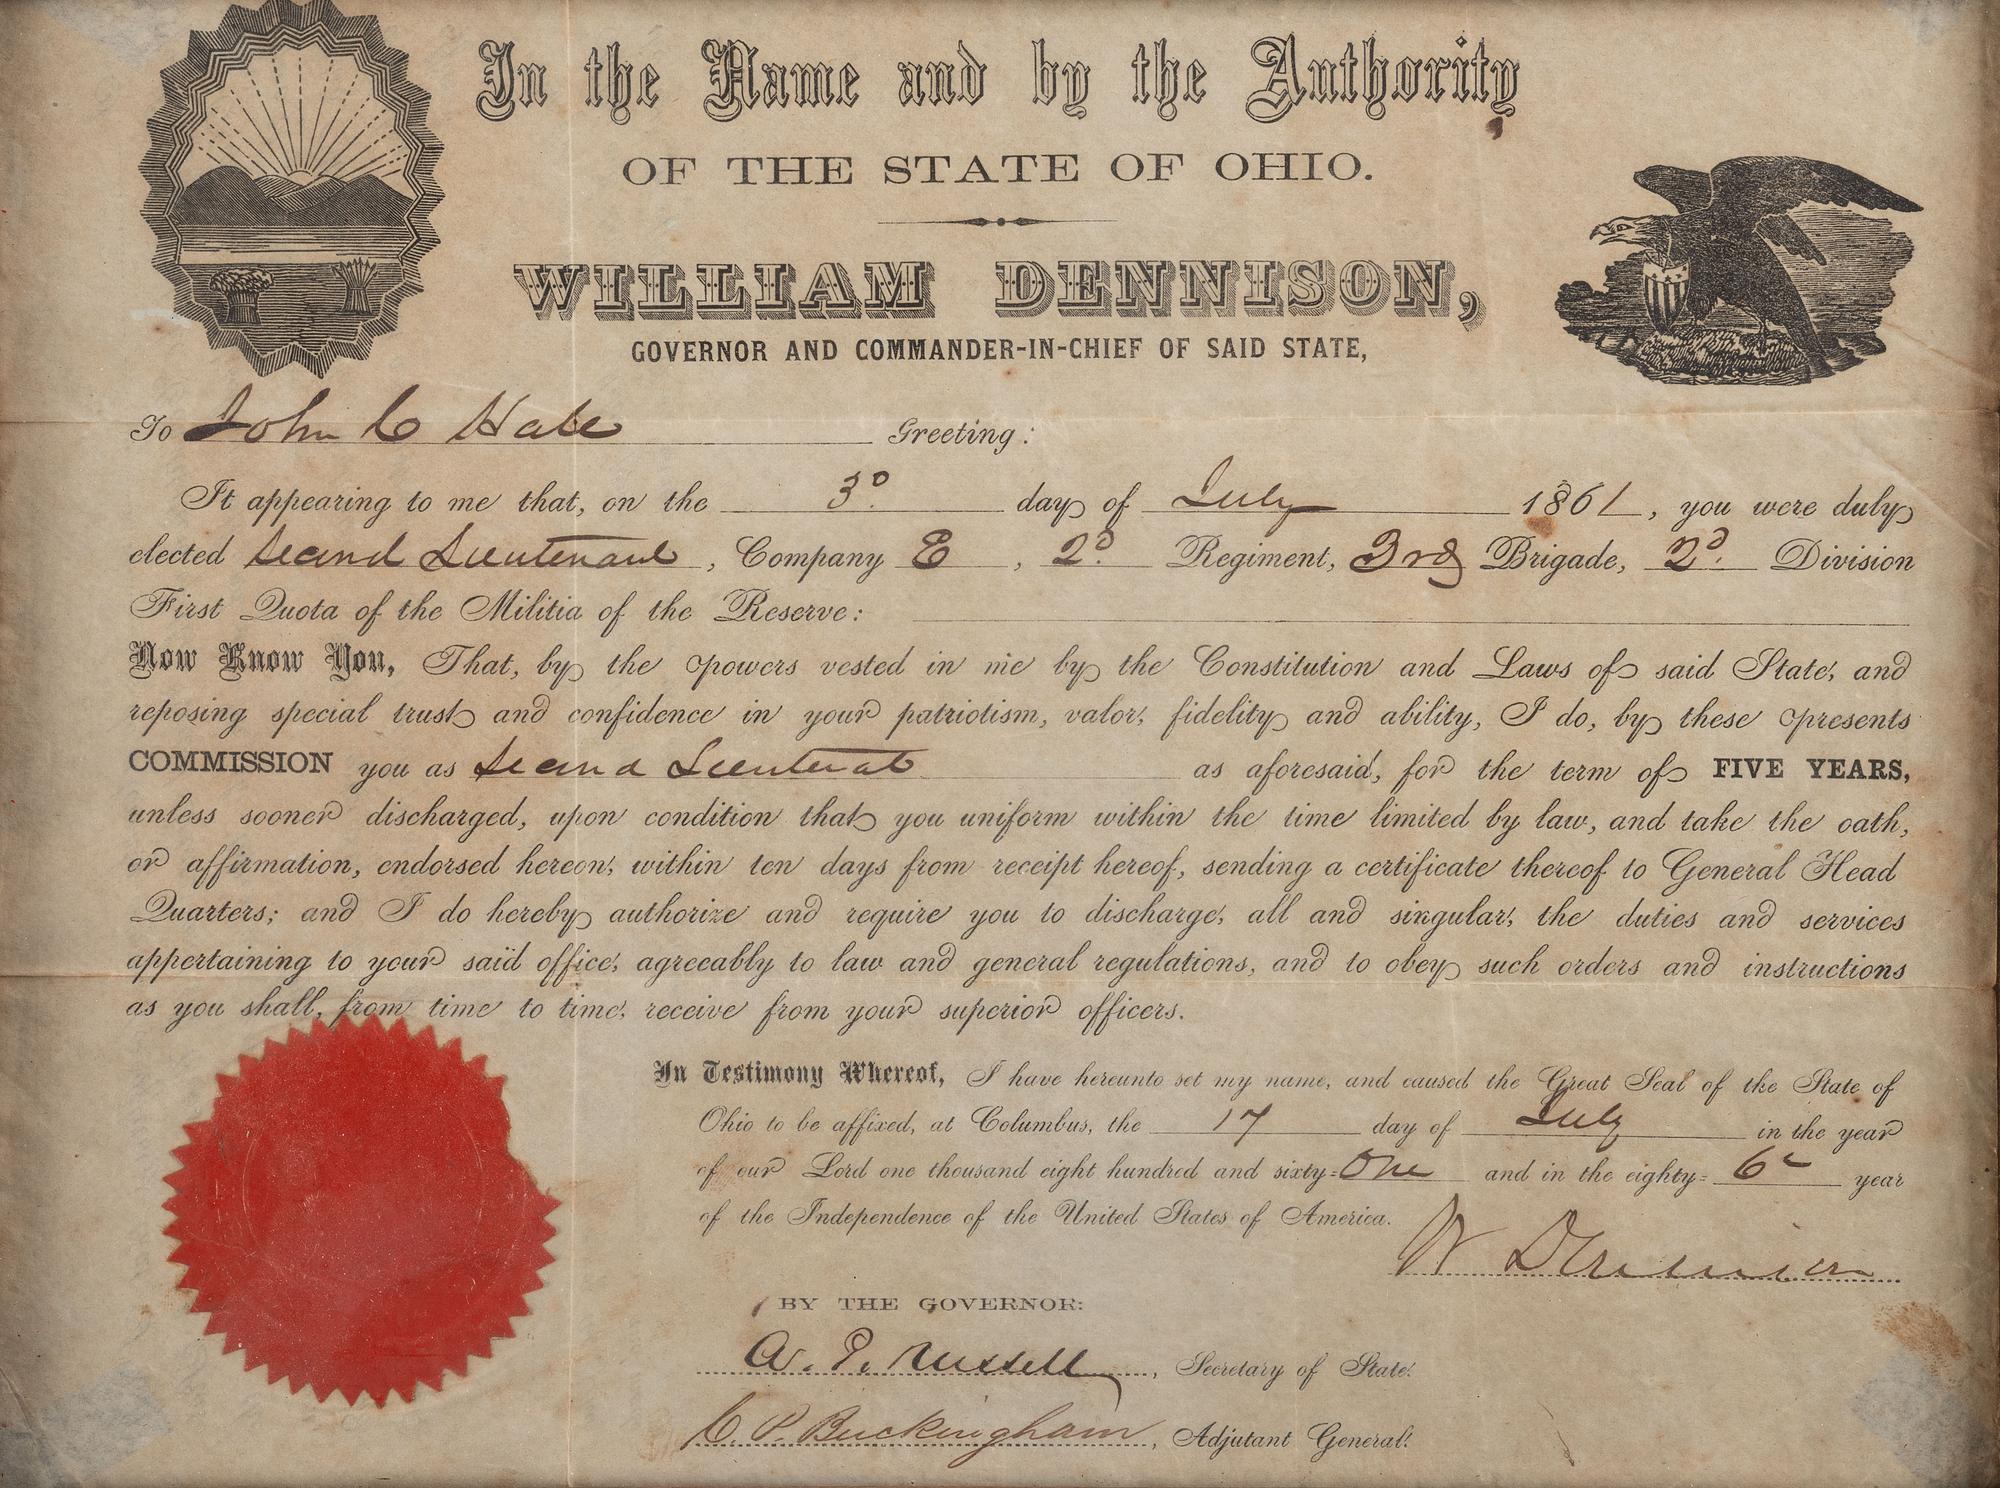 In the Name and by the Authority
OF THE STATE OF OHIO.
WILLIAM DENNISON,
GOVERNOR AND COMMANDER-IN-CHIEF OF SAID STATE,
To John C Hale Greeting:
It appearing to me that, on the 3d. day of July 1861, you were duly
elected Second Lieutenant, Company E, 2d. Regiment, 3rd Brigade, 2d. Division
First Quota of the Militia of the Reserve:
Now Know You, That, by the powers vested in me by the Constitution and Laws of said State, and
reposing special trust and confidence in your patriotism, valor, fidelity and ability, I do, by these presents
COMMISSION you as Second Lieutenat as aforesaid, for the term of FIVE YEARS,
unless sooner discharged, upon condition that you uniform within the time limited by law, and take the oath,
or affirmation, endorsed hereon, within ten days from receipt hereof, sending a certificate thereof to General Head
Quarters; and I do hereby authorize and require you to discharge, all and singular, the duties and services
appertaining to your said office, agreeably to law and general regulations, and to obey such orders and instructions
as you shall, from time to time, receive from your superior officers.
In Testimony Whereof, I have hereunto set my name, and caused the Great Seal of the State of
Ohio to be affixed, at Columbus, the 17 day of July in the year
of our Lord one thousand eight hundred and sixty-One and in the eighty-6th year
of the Independence of the United States of America.
W Dennison
BY THE GOVERNOR:
A. P. Russell, Secretary of State.
C. P. Buckingham, Adjutant General.